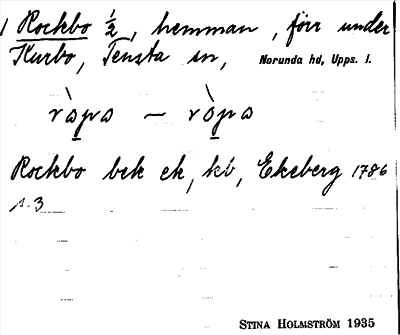 1 Rockbo 1/2, hemman, förr under
Kurbo, Tensta sn, Norunda hd, Upps. l.
ràpa – ròpa
Rockbo bek ek, kb, Ekeberg 1786
s. 3
STINA HOLMSTRÖM 1935